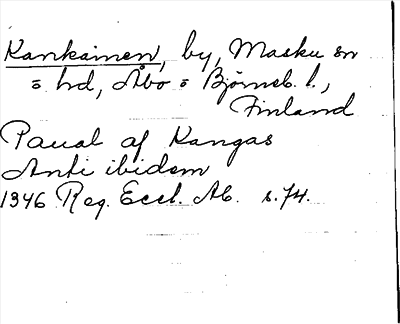 Kankainen, by, Masku sn
o hd, Åbo o Björneb. l.,
Finland
Paual af Kangas
Anti ibidem
1346 Reg. Eccl. Ab. s. 74.